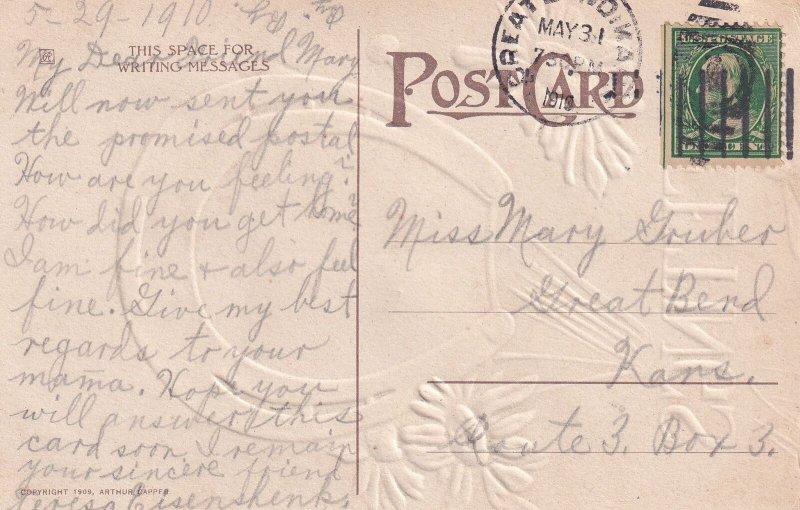 5-29-1910.
THIS SPACE FOR
WRITING MESSAGES
My Dear Friend Mary
Will now sent you
the promised postal
How are you feeling?
How did you get home?
I am fine + also feel
fine. Give my best
regards to your
mama. Hope you
will answer this
card soon. I remain
your sincere friend
Teresa Eisenshenk.
COPYRIGHT 1909, ARTHUR CAPPER
POST CARD
GREAT BEND
MAY 31
730 PM
1910
Miss Mary Gruber
Great Bend
Kans.
Route 3. Box 3.